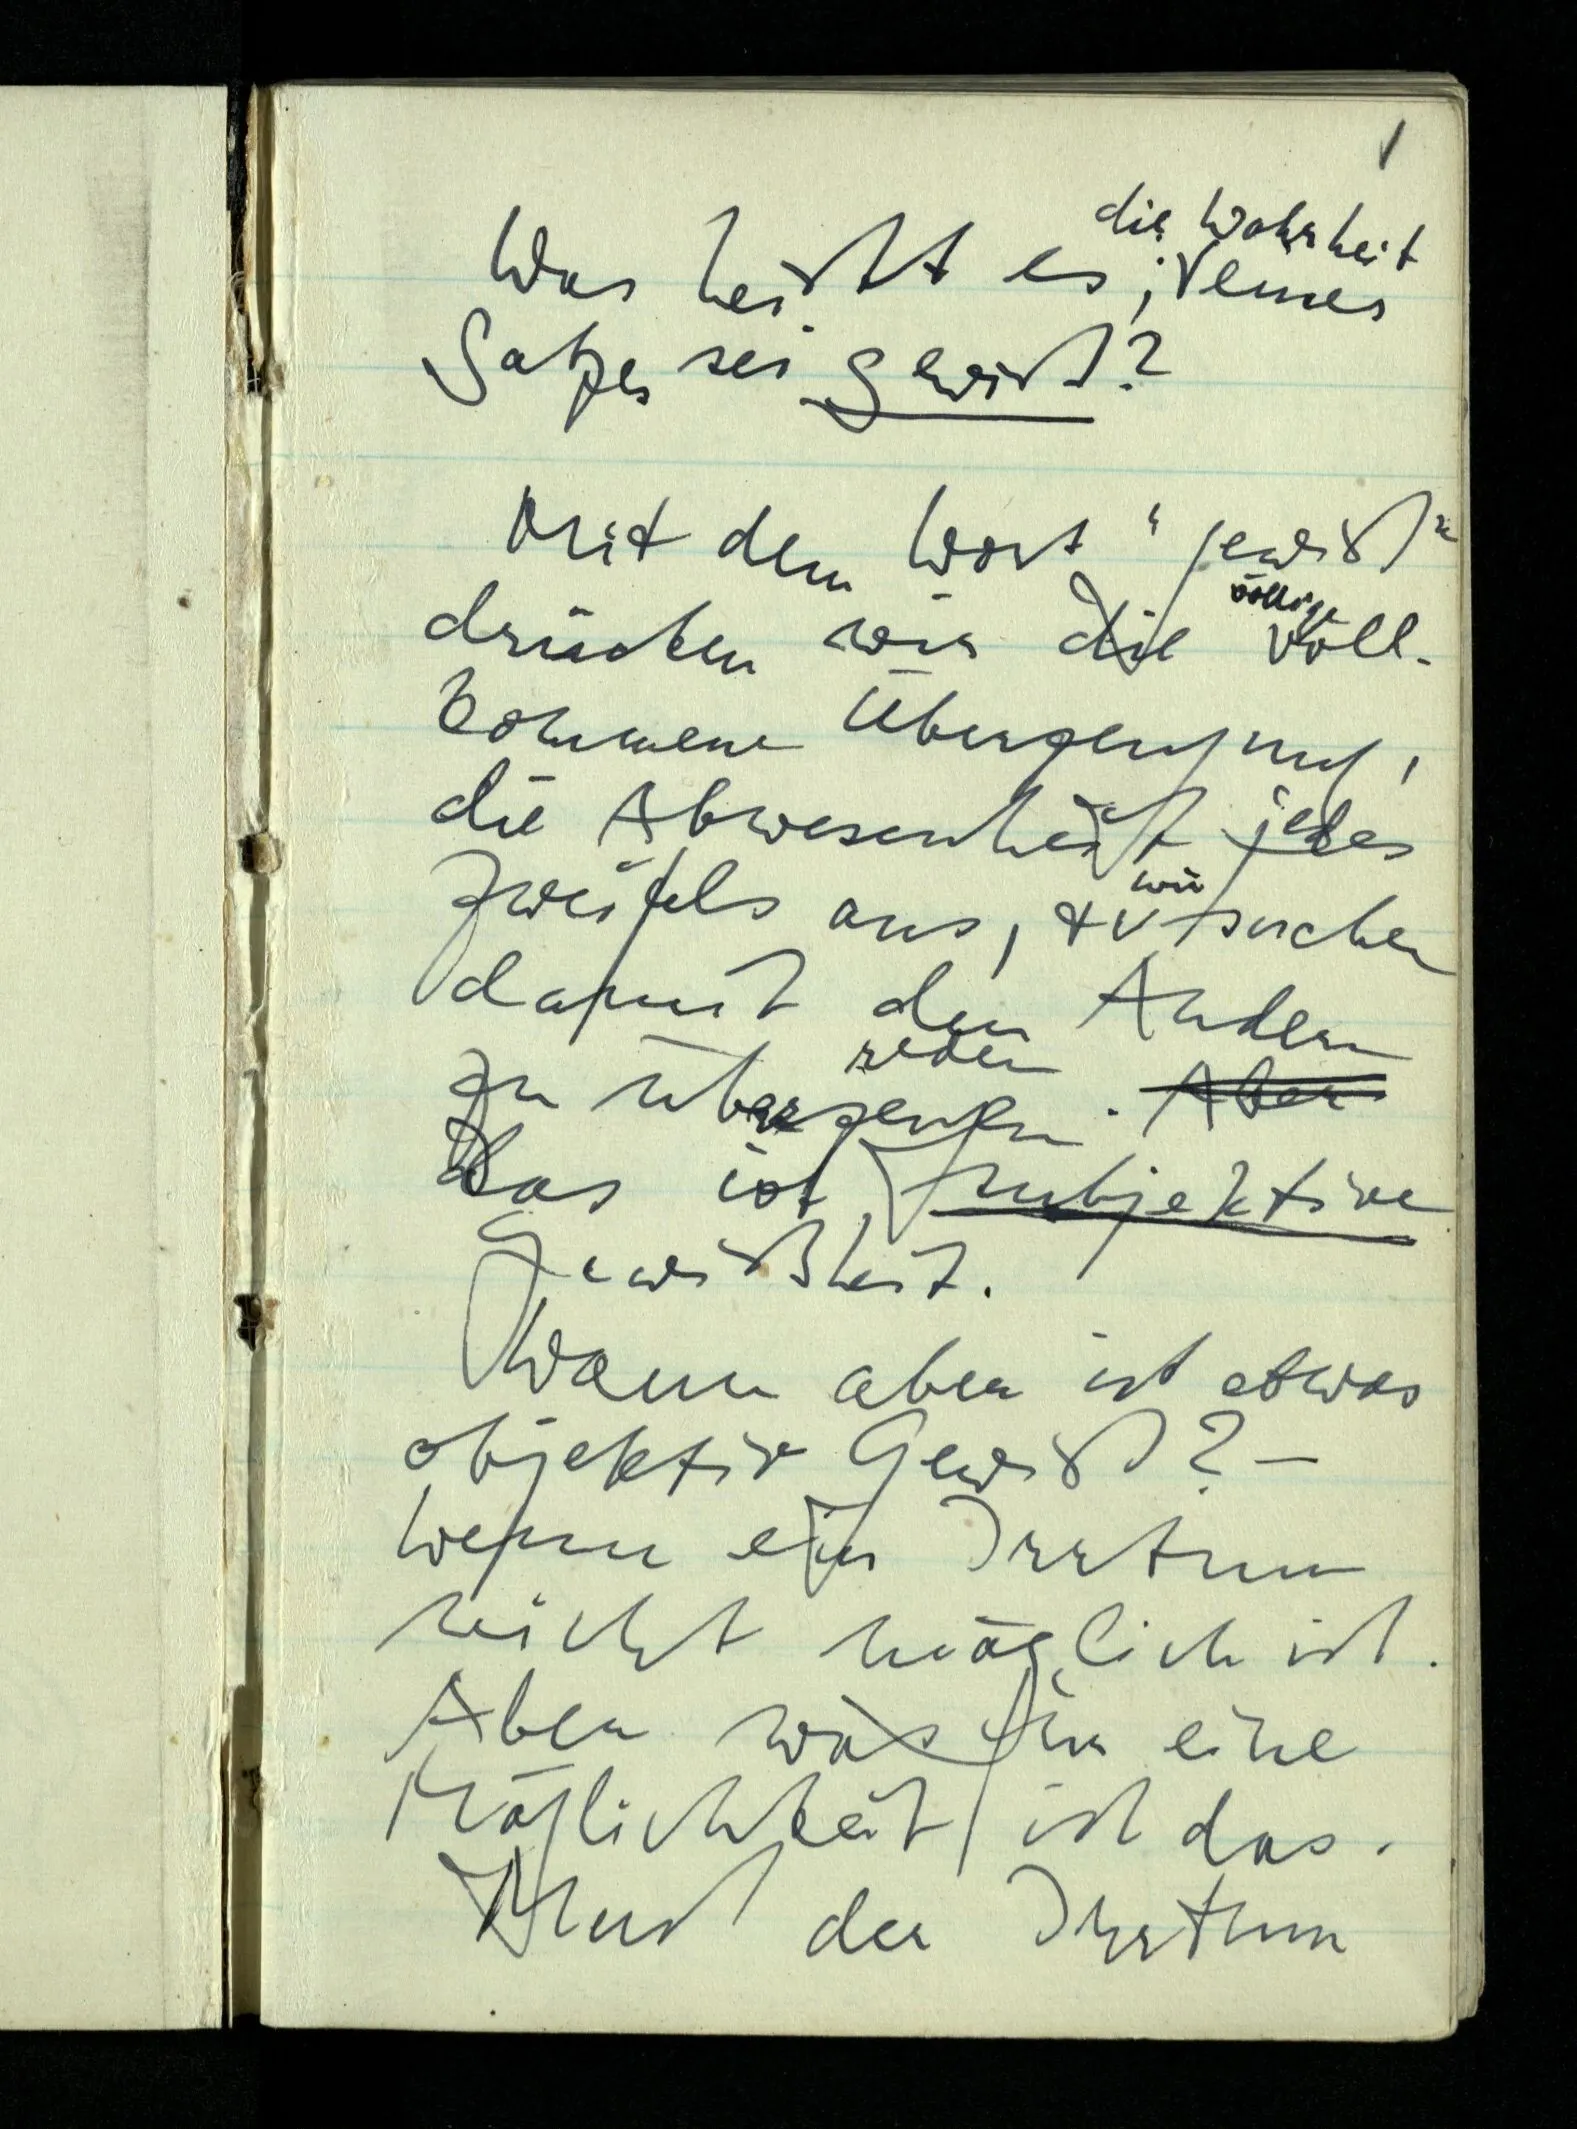 die Wahrheit
Was heißt es, eines
Satzes sei gewiß?
Mit dem Wort "gewiß"
völlige
drücken wir die voll-
kommene Überzeugung,
die Abwesenheit jedes
wir
Zweifels aus, & suchen
damit den Andern
reden
zu überzeugen. Aber
Das ist subjektive
Gewißheit.
Wann aber ist etwas
objektiv Gewiß? –
Wenn ein Irrtum
nicht möglich ist.
Aber was für eine
Möglichkeit ist das.
Muß der Irrtum